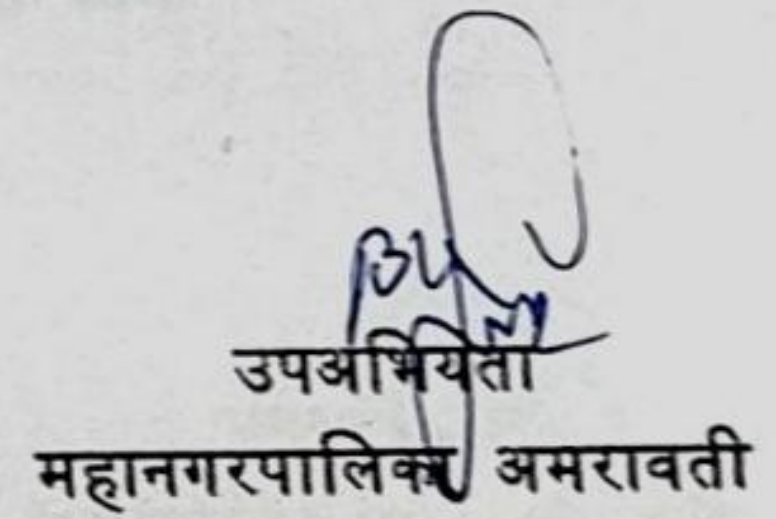 उपअभियंता
महानगरपालिका अमरावती